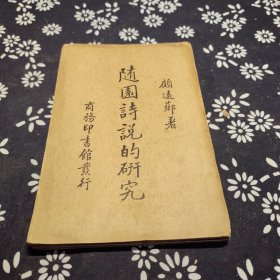 顧遠薌著
随園詩説的研究
商務印書館發行